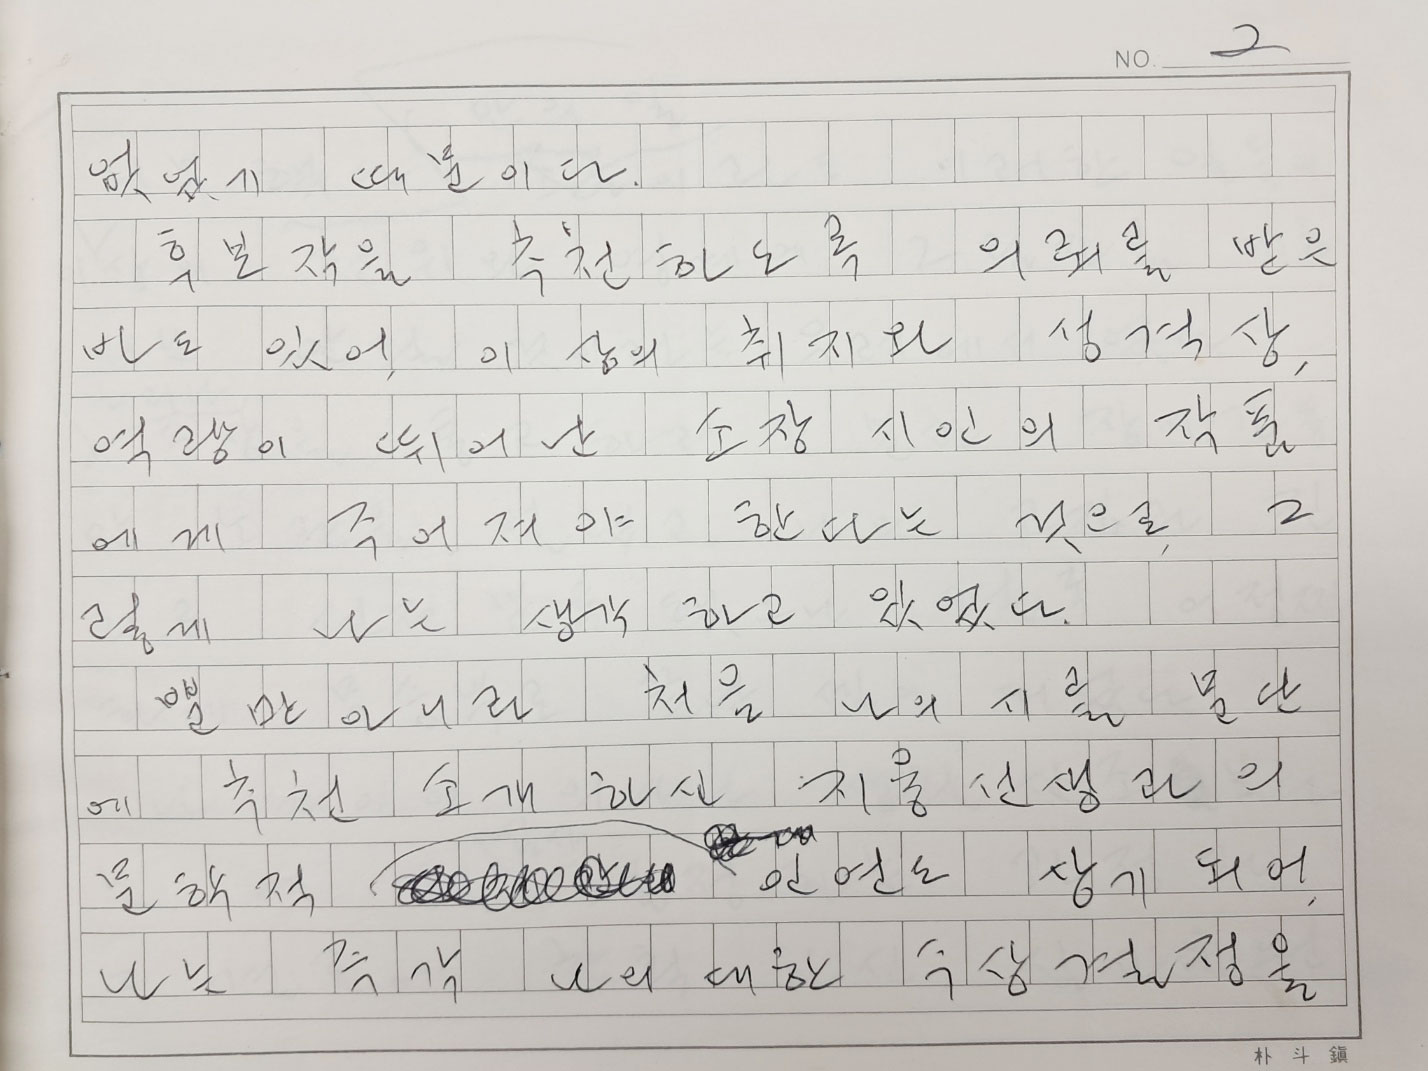 NO. 2
없었기 때문이다.
후보작을 추천하도록 의뢰를 받은
바도 있어, 이 상의 취지와 성격상,
역량이 뛰어난 소장 시인의 작품
에게 주어져야 한다는 것으로, 그
렇게 나는 생각하고 있었다.
뿐만 아니라 처음 나의 시를 문단
에 추천 소개하신 지용 선생과의
문학적 인연도 상기되어,
나는 즉각 나의 대한 수상 결정을
朴斗鎭